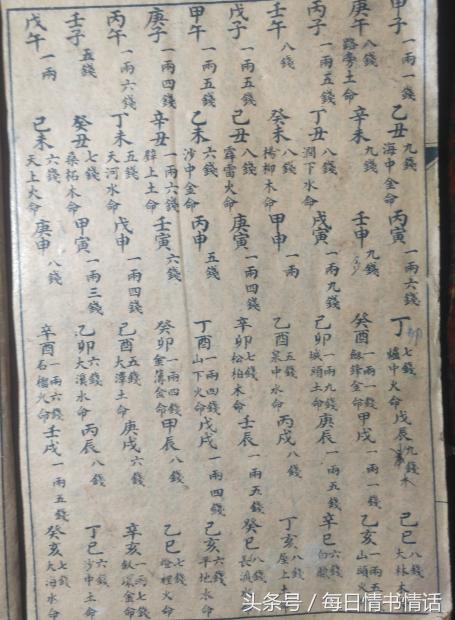 甲子 一兩一錢 乙丑 九錢 海中金命 丙寅 一兩六錢 丁卯 七錢 爐中火命 戊辰 九錢 木 己巳 八錢 大林木
庚午 八錢 路旁土命 辛未 九錢 壬申 九錢 癸酉 一兩一錢 劍鋒金命 甲戌 一兩一錢 乙亥 一兩五 山頭火
丙子 一兩五錢 丁丑 八錢 澗下水命 戊寅 一兩九錢 己卯 一兩九錢 城頭土命 庚辰 一兩五錢 辛巳 六錢 白臘
壬午 八錢 癸未 八錢 楊柳木命 甲申 一兩 乙酉 五錢 泉中水命 丙戌 八錢 丁亥 八錢 屋上土
戊子 一兩五錢 己丑 八錢 霹雷火命 庚寅 一兩四錢 辛卯 七錢 松柏木命 壬辰 一兩五錢 癸巳 八錢 長流水
甲午 一兩五錢 乙未 六錢 沙中金命 丙申 五錢 丁酉 一兩四錢 山下火命 戊戌 一兩四錢 己亥 六錢 平地水命
庚子 一兩四錢 辛丑 一兩六錢 辟上土命 壬寅 六錢 癸卯 一兩四錢 金簿金命 甲辰 八錢 乙巳 七錢 燈裡火命
丙午 一兩六錢 丁未 五錢 天河水命 戊申 一兩四錢 己酉 五錢 大澤土命 庚戌 六錢 辛亥 一兩七錢 釵環金命
壬子 五錢 癸丑 七錢 桑柘木命 甲寅 一兩三錢 乙卯 六錢 大溪水命 丙辰 八錢 丁巳 六錢 沙中土命
戊午 一兩 己未 六錢 天上火命 庚申 八錢 辛酉 一兩六錢 石榴火命 壬戌 一兩五錢 癸亥 七錢 大海水命
头条号 / 每日情书情话